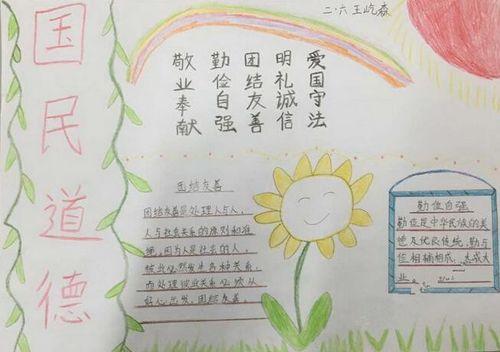 国民道德
二·六 王屹森
爱国守法
明礼诚信
团结友善
勤俭自强
敬业奉献
团结友善
团结友善是处理人与人、
人与社会关系的原则和准
绳,因为人是社会的人,
彼此必然发生各种关系,
而处理彼此关系必须从
好心出发,团结友善。
勤俭自强
勤俭是中华民族的美
德及优良传统,勤与
俭相辅相成
业